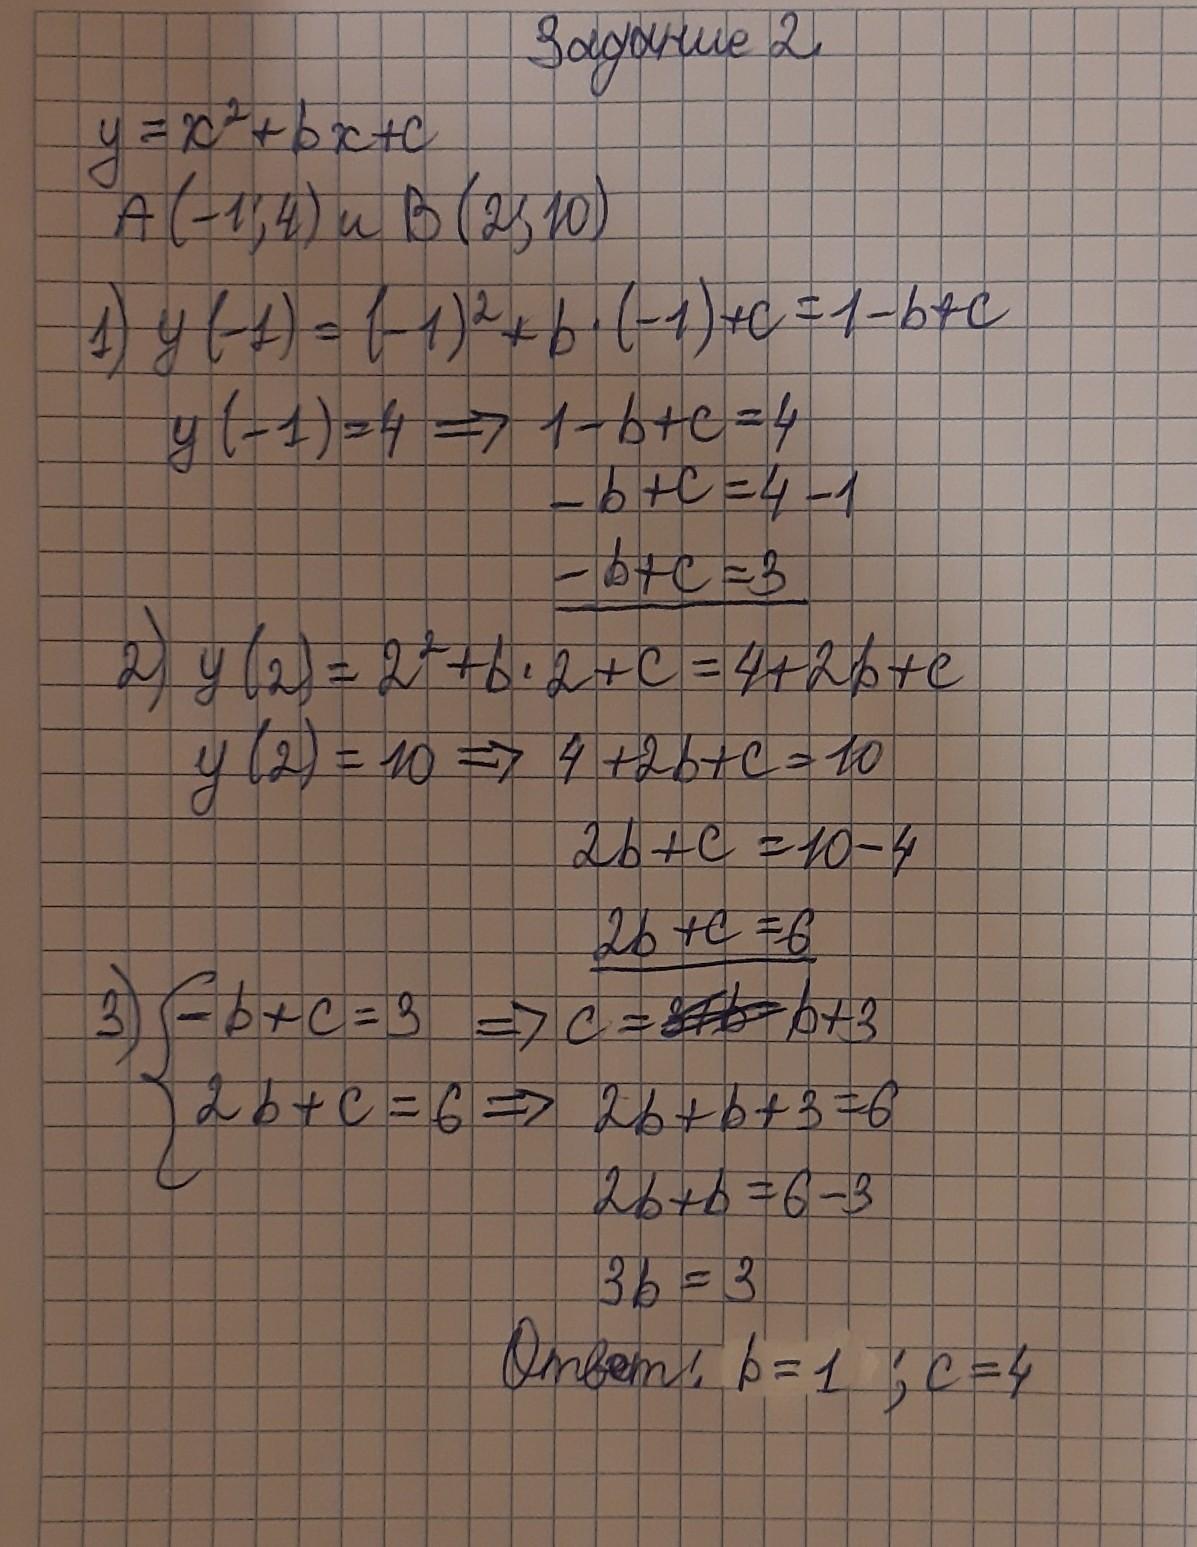 Задание 2
y = x² + bx + c
A (-1; 4) и B (2; 10)
1) y (-1) = (-1)² + b · (-1) + c = 1 - b + c
y (-1) = 4 => 1 - b + c = 4
- b + c = 4 - 1
- b + c = 3
2) y (2) = 2² + b · 2 + c = 4 + 2b + c
y (2) = 10 => 4 + 2b + c = 10
2b + c = 10 - 4
2b + c = 6
3) { - b + c = 3 => c = b + 3
2b + c = 6 => 2b + b + 3 = 6
2b + b = 6 - 3
3b = 3
Ответ: b = 1 ; c = 4